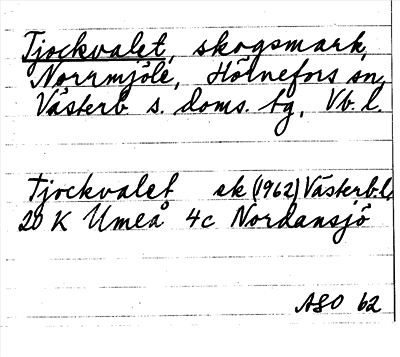 Tjockvalet, skogsmark,
Norrmjöle, Hörnefors sn,
Västerb. s. doms. tg, Vb. l.
Tjockvalet ek (1962) Västerb.l,
20 K Umeå 4c Nordansjö
ASO 62